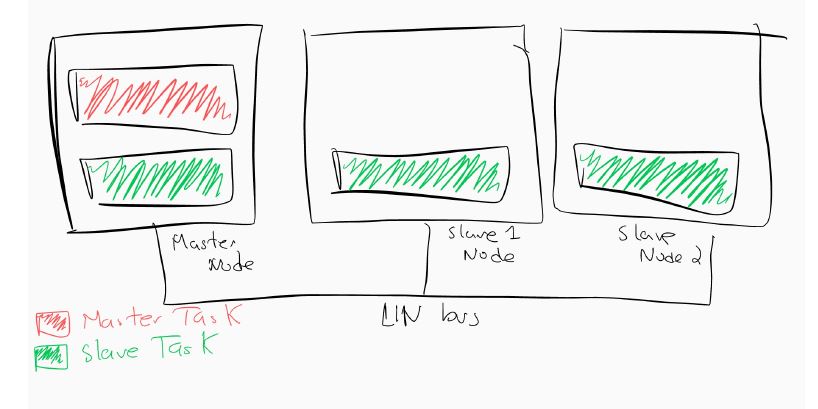 Master
Node
Slave 1
Node
Slave
Node 2
LIN bus
Master Task
Slave Task